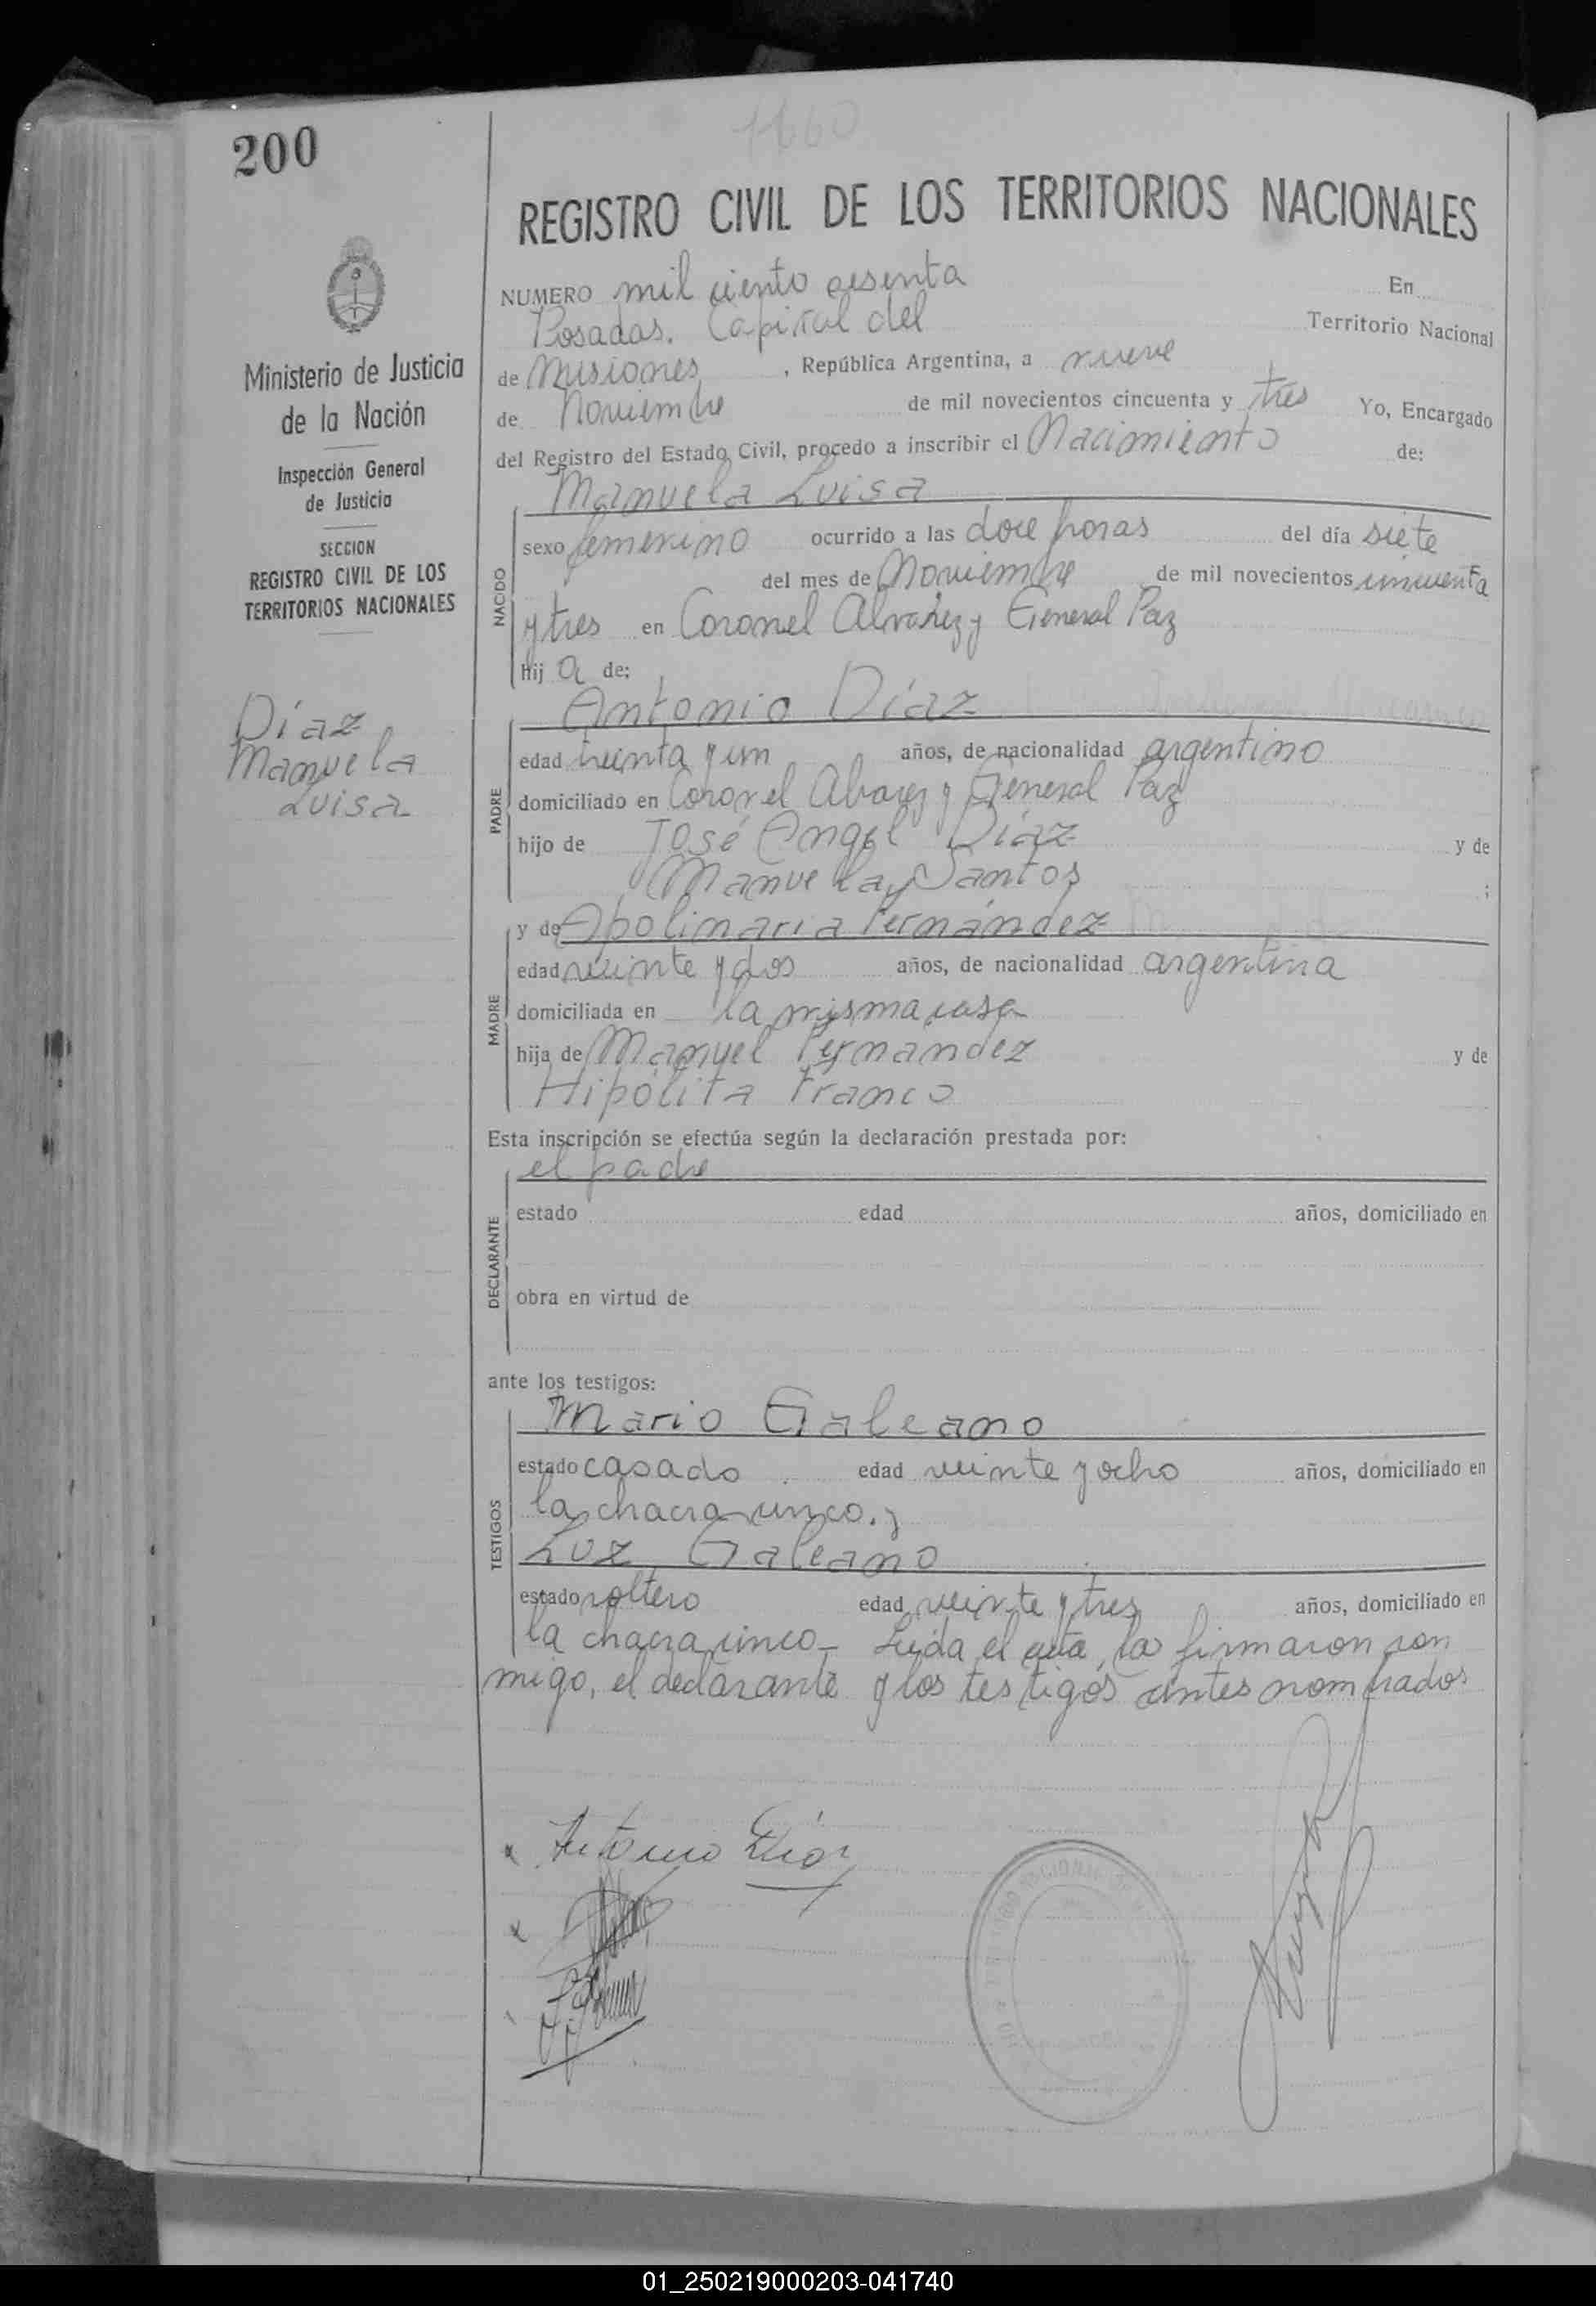 200
1160
REGISTRO CIVIL DE LOS TERRITORIOS NACIONALES
Ministerio de Justicia
de la Nación
Inspección General
de Justicia
SECCION
REGISTRO CIVIL DE LOS
TERRITORIOS NACIONALES
Díaz
Manuela
Luisa
NUMERO mil ciento sesenta En
Posadas. Capital del Territorio Nacional
de Misiones, República Argentina, a nueve
de Noviembre de mil novecientos cincuenta y tres Yo, Encargado
del Registro del Estado Civil, procedo a inscribir el Nacimiento de:
NACIDO
Manuela Luisa
sexo femenino ocurrido a las doce horas del día siete
del mes de Noviembre de mil novecientos cincuenta
y tres en Coronel Alvarez y General Paz
hij a de:
PADRE
Antonio Díaz
edad treinta y un años, de nacionalidad argentino
domiciliado en Coronel Alvarez y General Paz
hijo de José Angel Díaz y de
Manuela Santos ;
MADRE
y de Apolinaria Fernández
edad veinte y dos años, de nacionalidad argentina
domiciliada en la misma casa
hija de Manuel Fernandez y de
Hipólita Franco
Esta inscripción se efectúa según la declaración prestada por:
DECLARANTE
el padre
estado edad años, domiciliado en
obra en virtud de
ante los testigos:
TESTIGOS
Mario Galeano
estado casado edad veinte y ocho años, domiciliado en
la chacra cinco. y
Luz Galeano
estado soltero edad veinte y tres años, domiciliado en
la chacra cinco_ Leída el acta, la firmaron con
migo, el declarante y los testigos antes nombrados
x Antonio Díaz
x
01_250219000203-041740